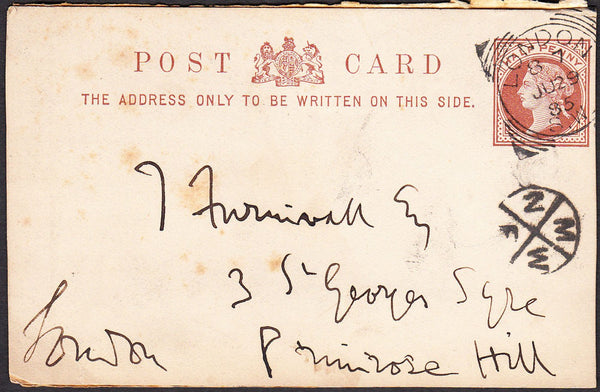 POST CARD
THE ADDRESS ONLY TO BE WRITTEN ON THIS SIDE.
HALFPENNY
LONDON
8 A
JU 29
85
F Furnivall Esq
3 St Georges Sqre
Primrose Hill
London
N
M
W